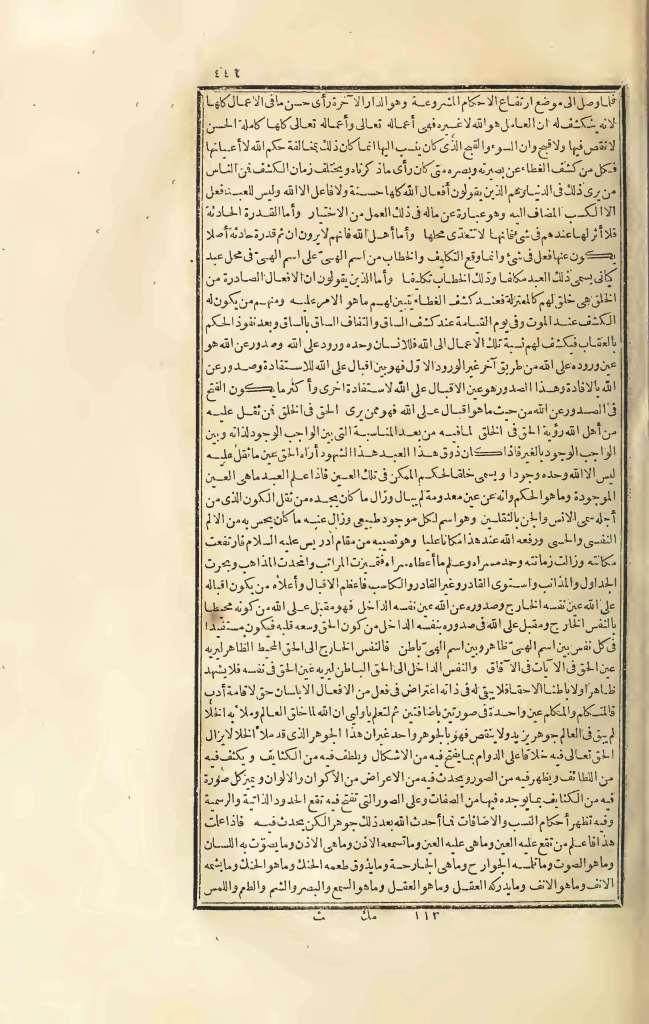 ٤٤٦
فلما وصل الى موضع ارتفاع الاحكام المشروعة وهو الدار الآخرة رأى حسن ما فى الاعمال كلها
لانه ينكشف له ان العامل هو الله لاغيره فهى أعماله تعالى وأعماله تعالى كلها كاملة الحسن
لا نقص فيها ولا قبح وان السوء والقبح الذى كان ينسب اليها انما كان ذلك بمخالفة حكم الله لا أعيانها
فكل من كشف الغطاء عن بصيرته وبصره متى كان رأى ماذكرناه ويختلف زمان الكشف فمن الناس
من يرى ذلك فى الدنيا وهم الذين يقولون أفعال الله كلها حسنة ولا فاعل الا الله وليس للعبد فعل
الا الكسب المضاف اليه وهو عبارة عن ماله فى ذلك العمل من الاختيار وأما القدرة الحادثة
فلا أثر لها عندهم فى شئ فانها لا تتعدّى محلها وأما أهل الله فانهم لا يرون ان ثم قدرة حادثة أصلا
يكون عنها فعل فى شئ وانما وقع التكليف والخطاب من اسم الهىّ على اسم الهىّ فى محل عبد
كيانى يسمى ذلك العبد مكلفا وذلك الخطاب تكليفا وأما الذين يقولون ان الافعال الصادرة من
الخلق هى خلق لهم كالمعتزلة فعند كشف الغطاء يتبين لهم ما هو الامر عليه ومنهم من يكون له
الكشف عند الموت وفى يوم القيامة عند كشف الساق والتفاف الساق بالساق وبعد نفوذ الحكم
بالعقاب فيكشف لهم نسبة تلك الاعمال الى الله فللانسان وحده ورود على الله وصدور عن الله هو
عين وروده على الله من طريق آخر غير الورود الاوّل فهو بين اقبال على الله للاستفادة وصدور عن
الله بالافادة وهذا الصدور هو عين الاقبال على الله لاستفادة أخرى وأكثر ما يكون الفتح
فى الصدور عن الله من حيث ما هو اقبال على الله فهو ممن يرى الحق فى الخلق فمن ثقل عليه
من أهل الله رؤية الحق فى الخلق لما فيه من بعد المناسبة التى بين الواجب الوجود لذاته وبين
الواجب الوجود بالغير فاذا كان ذوق هذا العبد هذا الشهود أراه الحق عين ما ثقل عليه
ليس الا الله وحده وجودا ويسمى خلقا لحكم الممكن فى تلك العين فاذا علم العبد ما هى العين
الموجودة وما هو الحكم وانه عن عين معدومة لم يبال وزال ما كان يجده من ثقل الكون الذى من
أجله سمى الانس والجن بالثقلين وهو اسم لكل موجود طبيعى وزال عنه ما كان يحس به من الالم
النفسى والحسى ورفعه الله عند هذا مكانا عليا وهو نصيبه من مقام ادريس عليه السلام فارتفعت
مكانته وزالت زمانته وحمد مسراه وعلم ما أعطاه سراه فتميزت المراتب واتحدت المذاهب وتبحرت
الجداول والمذانب واستوى القادر وغير القادر والكاسب فاعظم الاقبال وأعلاه من يكون اقباله
على الله عين نفسه الخارج وصدوره عن الله عين نفسه الداخل فهو مقبل على الله من كونه محيطا
بالنفس الخارج ومقبل على الله فى صدوره بنفسه الداخل من كون الحق وسعه قلبه فيكون مستفيدا
فى كل نفس بين اسم الهىّ ظاهر وبين اسم الهىّ باطن فالنفس الخارج الى الحق المحيط الظاهر ليريه
عين الحق فى الآيات فى الآفاق والنفس الداخل الى الحق الباطن ليريه عين الحق فى نفسه فلا يشهد
ظاهرا ولا باطنا الا حقا فلا يبقى له فى ذاته اعتراض فى فعل من الافعال الا بلسان حق لاقامة أدب
فالمتكلم والمكلم عين واحدة فى صورتين باضافتين ثم لتعلم يا وليى ان الله لما خلق العالم وملأ به الخلا
لم يبق فى العالم جوهر يزيد ولا ينقص فهو بالجوهر واحد غير ان هذا الجوهر الذى قد ملأ الخلا لا يزال
الحق تعالى فيه خلاقا على الدوام بما يفتح فيه من الاشكال ويلطف فيه من الكثائف ويكثف فيه
من اللطائف ويظهر فيه من الصور ويحدث فيه من الاعراض من الاكوان والالوان ويميز كل صورة
فيه من الكثايف بما يوجده فيها من الصفات وعلى الصور التى تفتح فيه تقع الحدود الذاتية والرسمية
وفيه تظهر أحكام النسب والاضافات فما أحدث الله بعد ذلك جوهرا لكن يحدث فيه فاذا علمت
هذا فاعلم من تقع عليه العين وما هى عليه العين وما تسمعه الاذن وما هى الاذن وما يصوّت به اللسان
وما هو الصوت وما تلمسه الجوارح وما هى الجارحة وما يذوق طعمه الحنك وما هو الحنك وما يشمه
الانف وما هو الانف وما يدركه العقل وما هو العقل وما هو السمع والبصر والشم والطعم واللمس
١١٢ مك ث